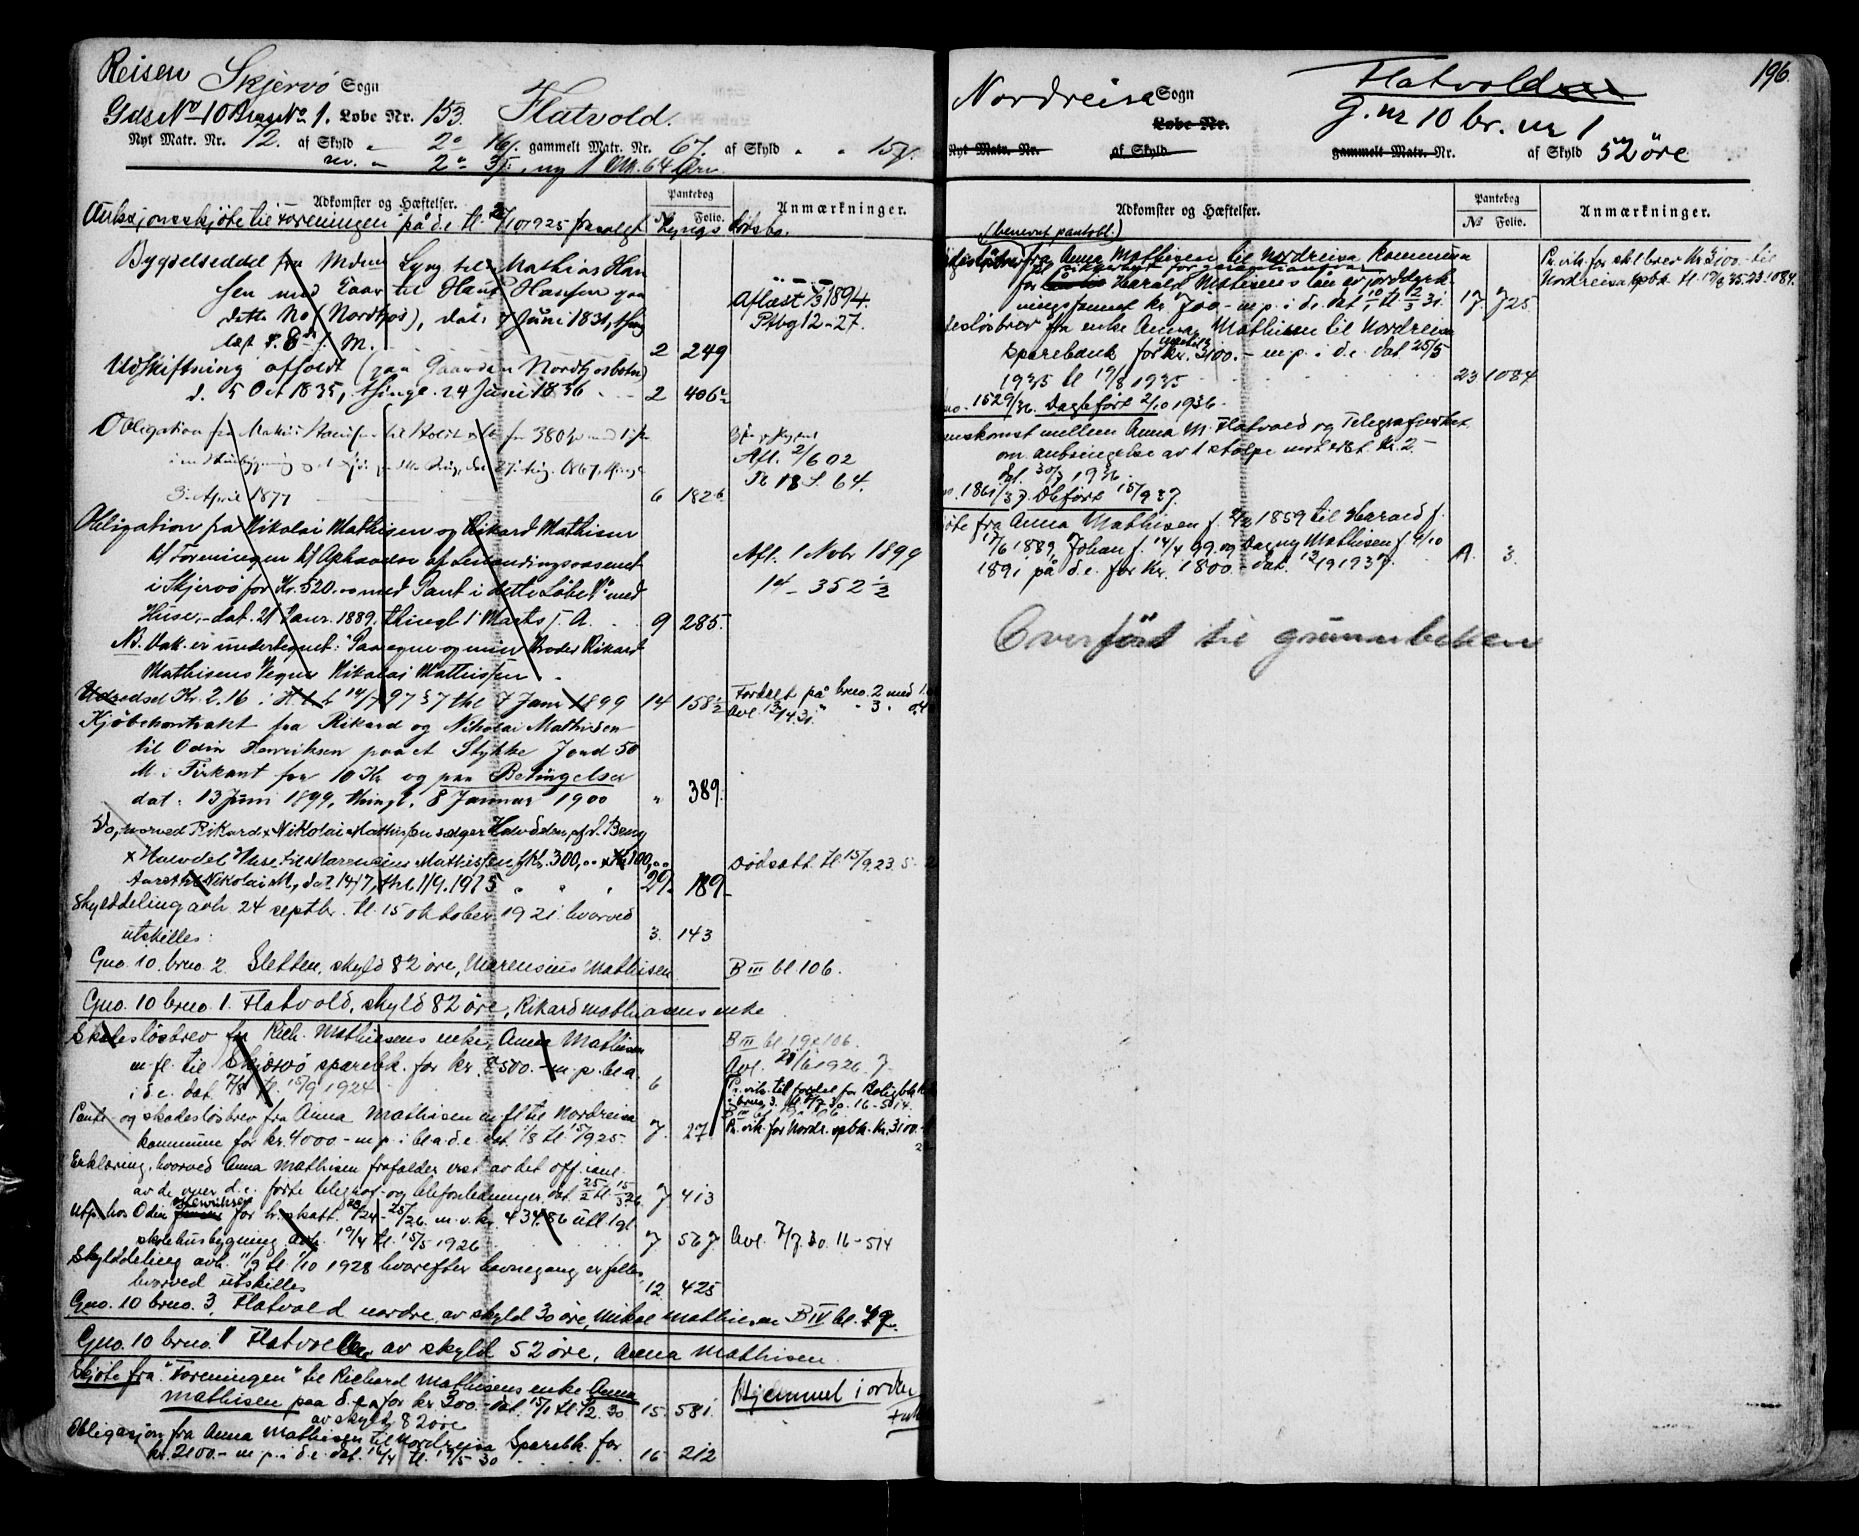 Reisen Skjervø Sogn
Gds No 10 Brugs No 1. Løbe Nr. 153. Flatvold.
Nyt Matr. Nr. 72. af Skyld " 2 " 16, gammelt Matr. Nr. 67. af Skyld
2 " ny 1 Mk. 64 Øre.
Adkomster og Hæftelser. Pantebog No Folio. Anmærkninger.
Auksjonsskjøte til Foreningen på d.e. tl. 1925 Lyngs
Bygselseddel fra Lyng til Mathias Han
sen med til Hans Hansen paa
dette No (Nordkjos), dat. 7 Juni 1831, thing
læst s. M. 2 249
Aflæst 1894.
Ptbg 12-27.
Udskiftning afholdt (paa Gaarden Nordkjosbotn)
d. 5 Oct 1835, thingl. 24 Juni 1836 2 406
Obligation fra Mathis Hansen til Holst for 380
dat 1867,
3 April 1877 6 182
Afl. 2/6 02
Pb 13 S. 64.
Obligation fra Nikolai Mathisen og Rikard Mathisen
til Foreningen til Ophævelse af Leilændingsvæsenet
i Skjervø for Kr. 520.00 med Pant i dette Løbe No med
Huse, - dat. 21 Janr. 1889. thingl. 1 Marts s. A. 9 285.
Afl. 1 Nobr 1899
14 - 352 1/2
NB. Vak. er undertegnet: Paa egne og min Broder Rikard
Mathisens Vegne Nikolai Mathissen.
Udredsel Kr. 2.16 i H.t.L. 14/7 97 § 7 thl. 7 Janr 1899 14 158 1/2
Fordelt på bno. 2 med
Kjøbekontrakt fra Rikard og Nikolai Mathisen
til Odin Henriksen paa et Stykke Jord 50
M. i Firkant for 10 Kr og paa Betingelser
dat. 13 Juni 1899, thingl. 8 Januar 1900 " 389.
Do, hvorved Rikard & Nikolai Mathissen sælger Halvdelen af d. Brug
& Halvdel Huse til Marensius Mathissen f. Kr. 300,00
Aaret til Nikolai M., dat 14/7, thl. 1/9. 1915 29. 189.
Dødsatt. tl 15/9.23.
Skylddeling avh. 24 septbr. tl. 15 oktober 1921 hvorved
utskilles: 3. 143
Gno. 10. bno. 2. Sletten, skyld 82 øre, Marensius Mathisen B III bl 106.
Gno. 10 bno. 1. Flatvold, skyld 82 øre, Rikard Mathiasens enke
Skadesløsbrev fra Rich. Mathisens enke, Anna Mathisen
m. fl. til Skjervø sparebk. for kr. 2500.- m. p. bl. a.
i d. e. dat. 7/8 tl. 15/9 1924 6
Pante og skadesløsbrev fra Anna Mathisen m. fl til Nordreisa
kommune for kr. 4000 - m p. i bl a d. e. dat. 1/8 tl 15/9 1925. 7. 27
Pr. vik. for Nordr. spbk. kr. 3100.-
Erklæring, hvorved Anna Mathisen frafalder erst. av det off. i anl.
av de over d. e. førte telegraf- og telefonledninger, dat. 25/2 tl. 15/3 26 7 413
Utp. hos Odin Henriksen for kr. skatt. 24 - 25/26. m. v. kr. 434.86 utl igl.
skolehusbygning avh. 19/4 tl. 15/5 1926 7 567.
Avl. 7/7. 30. 16-514
Skylddeling avh. 11/9 tl. 1/10 1928 hvorefter havnegang er felles,
hvorved utskilles 12. 425
Gno. 10 bno. 3, Flatvold nordre, av skyld 30 øre, Mikal Mathisen B IV bl. 49.
Gno. 10 bno. 1 Flatvollen, av skyld 52 øre, Anna Mathisen.
Skjøte fra "Foreningen" til Richard Mathisens enke Anna
Mathisen paa d. e. for kr. 300. - dat. 15/1 tl. 1/2. 30. 15. 581.
av skyld 82 øre
Hjemmel i orden
Obligasjon fra Anna Mathisen til Nordreisa Sparebk. for
kr. 2100.- m. p. i d. e. dat. 16/4 tl. 19/5 30 16 212
196.
Nordreisa Sogn
Flatvolden
G. nr 10 br. nr 1
Løbe Nr.
Nyt Matr. Nr. af Skyld gammelt Matr. Nr. af Skyld 52 øre
Adkomster og Hæftelser. Pantebog No Folio. Anmærkninger.
(benevnt pantobl.)
fra Anna Mathisen til Nordreisa kommune
for Harald Mathisens lån av jorddyrk-
ningsfonnet kr. 700.- m. p. i d. e. dat 10/1 tl 2/3 31. 17. 725.
Pr. vik. for sk.l.brev kr. 3100.- til
Nordreisa spbk. tl. 19/8 35. 23. 1084.
desløsbrev fra enke Anna Mathisen til Nordreisa
Sparebank for kr. 3100.- m. p. i d. e. dat 25/5
1935 tl 19/8 1935 23 1084
no. 1529/36. Dagbført 2/10 1936.
enskomst mellem Anna M. Flatvold og Telegrafverket
om anbringelse av 1 stolpe mot erst. kr. 2.-
dat. 30/7 1936.
no. 1861/37. Dbført 15/9 37.
jøte fra Anna Mathisen f. 1859 til Harald f.
17/6 1889, Johan f. 14/4 99 og Dagny Mathisen f. 4/10
1891 på d. e. for kr. 1800.- dat. 13/9 1937. A. 3.
Overført til grunnboken